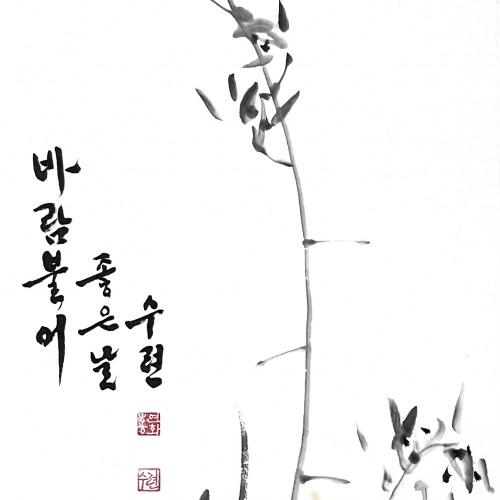 바람불어
좋은날
수련
수련